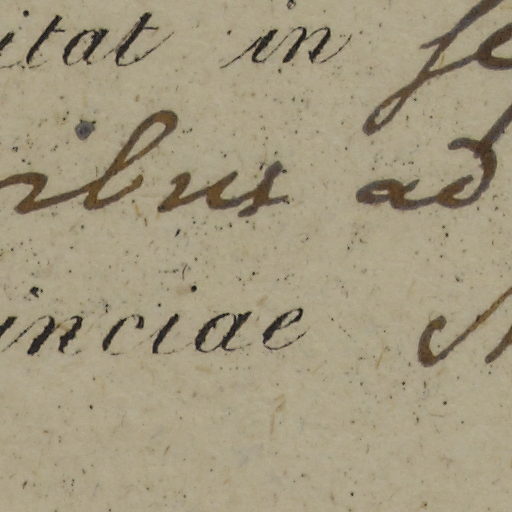 itat in se
ribus ad
inciae